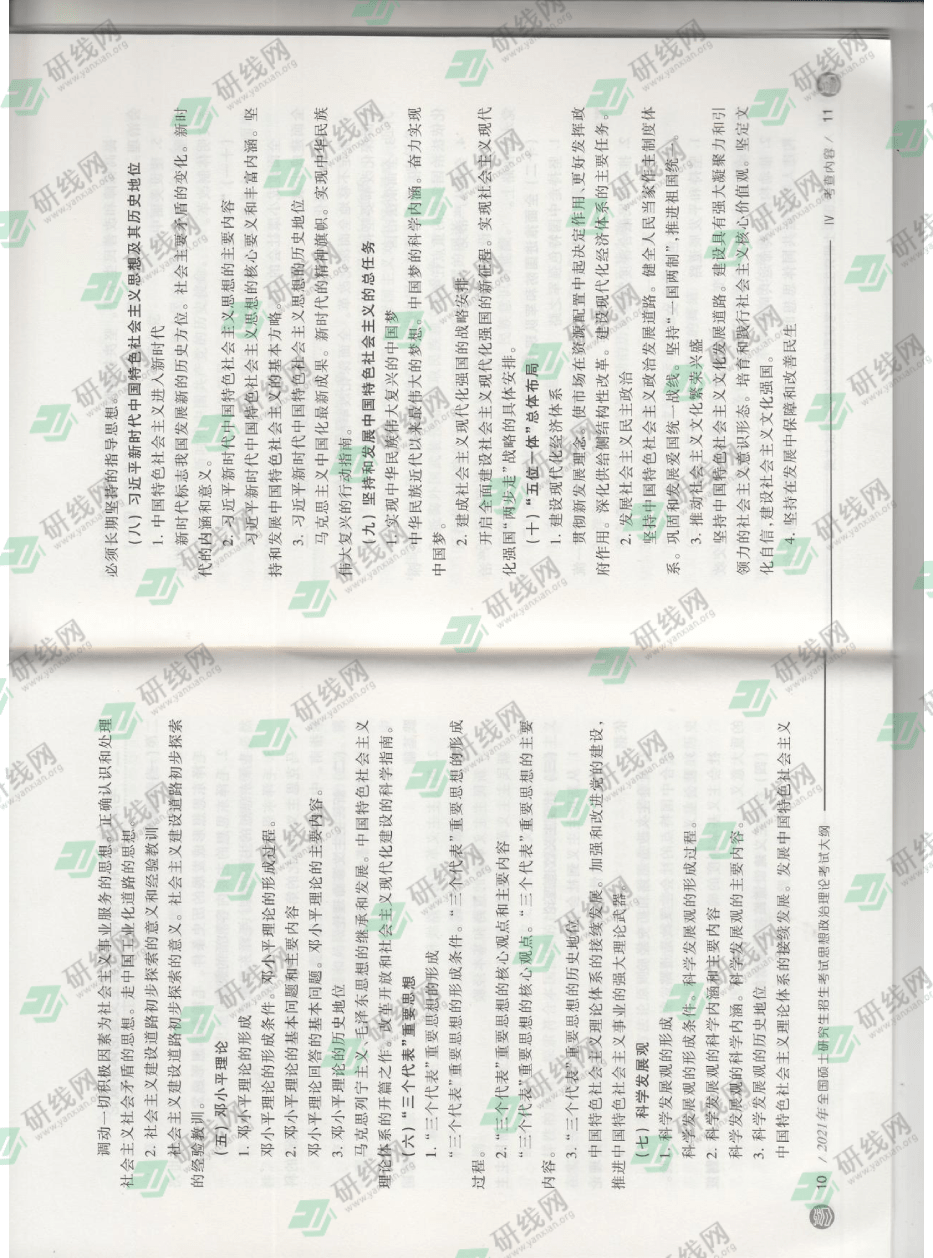 调动一切积极因素为社会主义事业服务的思想。正确认识和处理
社会主义社会矛盾的思想。走中国工业化道路的思想。
2. 社会主义建设道路初步探索的意义和经验教训
社会主义建设道路初步探索的意义。社会主义建设道路初步探索
的经验教训。
(五)邓小平理论
1. 邓小平理论的形成
邓小平理论的形成条件。邓小平理论的形成过程。
2. 邓小平理论的基本问题和主要内容
邓小平理论回答的基本问题。邓小平理论的主要内容。
3. 邓小平理论的历史地位
马克思列宁主义、毛泽东思想的继承和发展。中国特色社会主义
理论体系的开篇之作。改革开放和社会主义现代化建设的科学指南。
(六)“三个代表”重要思想
1. “三个代表”重要思想的形成
“三个代表”重要思想的形成条件。“三个代表”重要思想的形成
过程。
2. “三个代表”重要思想的核心观点和主要内容
“三个代表”重要思想的核心观点。“三个代表”重要思想的主要
内容。
3. “三个代表”重要思想的历史地位
中国特色社会主义理论体系的接续发展。加强和改进党的建设,
推进中国特色社会主义事业的强大理论武器。
(七)科学发展观
1. 科学发展观的形成
科学发展观的形成条件。科学发展观的形成过程。
2. 科学发展观的科学内涵和主要内容
科学发展观的科学内涵。科学发展观的主要内容。
3. 科学发展观的历史地位
中国特色社会主义理论体系的接续发展。发展中国特色社会主义
10 / 2021年全国硕士研究生招生考试思想政治理论考试大纲
必须长期坚持的指导思想。
(八)习近平新时代中国特色社会主义思想及其历史地位
1. 中国特色社会主义进入新时代
新时代标志我国发展新的历史方位。社会主要矛盾的变化。新时
代的内涵和意义。
2. 习近平新时代中国特色社会主义思想的主要内容
习近平新时代中国特色社会主义思想的核心要义和丰富内涵。坚
持和发展中国特色社会主义的基本方略。
3. 习近平新时代中国特色社会主义思想的历史地位
马克思主义中国化最新成果。新时代的精神旗帜。实现中华民族
伟大复兴的行动指南。
(九)坚持和发展中国特色社会主义的总任务
1. 实现中华民族伟大复兴的中国梦
中华民族近代以来最伟大的梦想。中国梦的科学内涵。奋力实现
中国梦。
2. 建成社会主义现代化强国的战略安排
开启全面建设社会主义现代化强国的新征程。实现社会主义现代
化强国“两步走”战略的具体安排。
(十)“五位一体”总体布局
1. 建设现代化经济体系
贯彻新发展理念。使市场在资源配置中起决定作用、更好发挥政
府作用。深化供给侧结构性改革。建设现代化经济体系的主要任务。
2. 发展社会主义民主政治
坚持中国特色社会主义政治发展道路。健全人民当家作主制度体
系。巩固和发展爱国统一战线。坚持“一国两制”,推进祖国统一。
3. 推动社会主义文化繁荣兴盛
坚持中国特色社会主义文化发展道路。建设具有强大凝聚力和引
领力的社会主义意识形态。培育和践行社会主义核心价值观。坚定文
化自信,建设社会主义文化强国。
4. 坚持在发展中保障和改善民生
IV 考查内容 / 11
研线网
www.yanxian.org